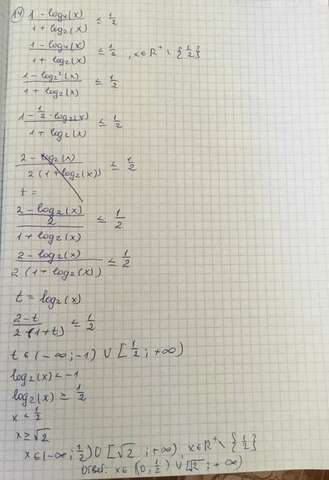 14) (1 - log₄(x))/(1 + log₂(x)) ≤ 1/2
(1 - log₄(x))/(1 + log₂(x)) ≤ 1/2 , x ∈ R⁺ \ {1/2}
(1 - log₂²(x))/(1 + log₂(x)) ≤ 1/2
(1 - 1/2 · log₂(x))/(1 + log₂(x)) ≤ 1/2
(2 - log₂(x))/(2(1 + log₂(x))) ≤ 1/2
t =
((2 - log₂(x))/2)/(1 + log₂(x)) ≤ 1/2
(2 - log₂(x))/(2(1 + log₂(x))) ≤ 1/2
t = log₂(x)
(2 - t)/(2(1 + t)) ≤ 1/2
t ∈ (-∞; -1) ∪ [1/2; +∞)
log₂(x) < -1
log₂(x) ≥ 1/2
x < 1/2
x ≥ √2
x ∈ (-∞; 1/2) ∪ [√2; +∞), x ∈ R⁺ \ {1/2}
Ответ: x ∈ (0; 1/2) ∪ [√2; +∞)